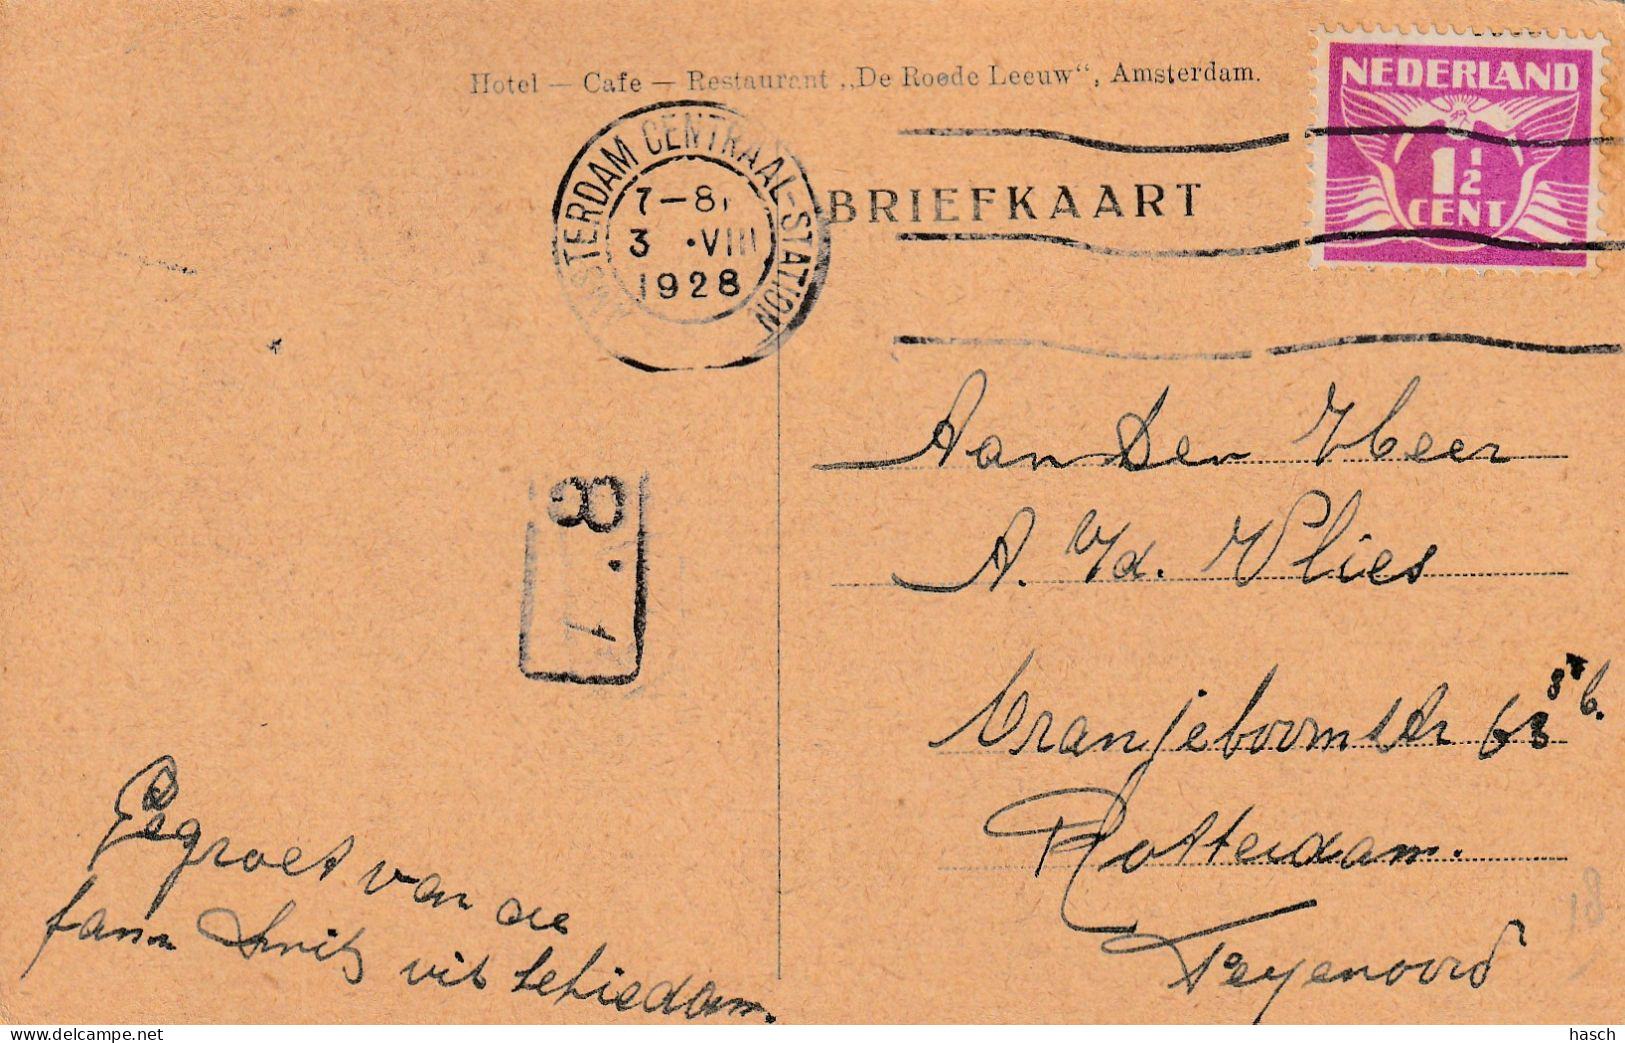 Hotel — Cafe — Restaurant „De Roode Leeuw“, Amsterdam.
NEDERLAND
1½
CENT
AMSTERDAM CENTRAAL-STATION
7-8
3 .VIII
1928
BRIEFKAART
Aan Den Heer
A. v/d. Vlies
Oranjeboomstr 63 8 b.
Rotterdam.
Feyenoord
8
1
Gegroet van de
fam Smits uit Schiedam.
18
hasch